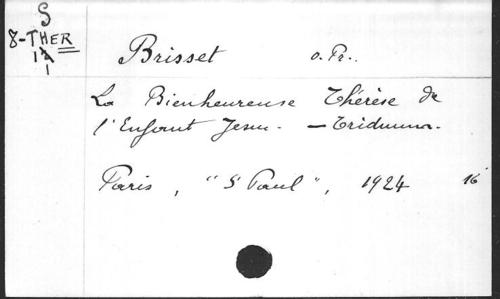 S
8-THER
1
1
Brisset o. Pr..
La Bienheureuse Thérèse de
l'Enfant Jesu. — Triduum.
Paris, "S Paul", 1924 16